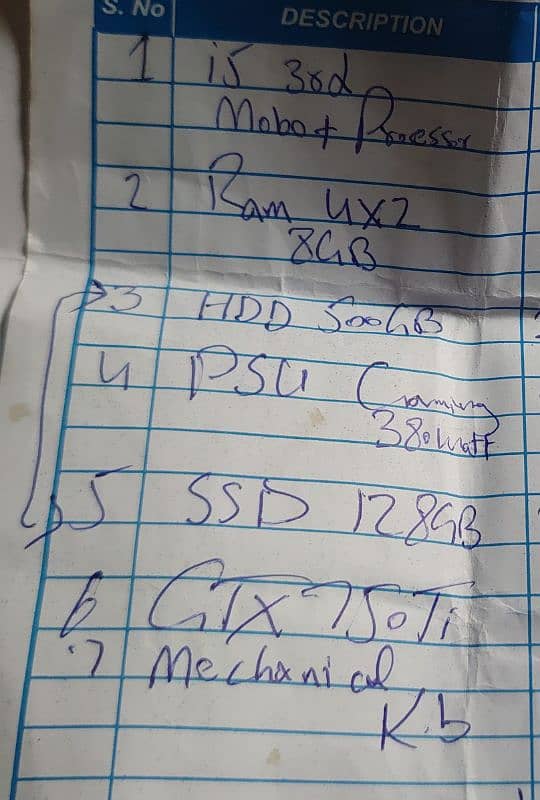 S. No DESCRIPTION
1 i5 3rd
Mobo + Processor
2 Ram 4x2
8GB
3 HDD 500GB
4 PSU Gaming
380Watt
5 SSD 128GB
6 GTX 750Ti
7 Mechanical
K.b